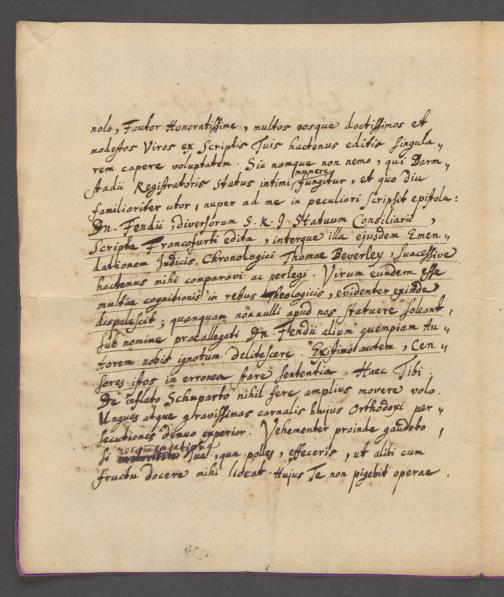 nolo, Fautor Honoratissime, multos eosque doctissimos et
modestos Viros ex Scriptis Tuis hactenus editis singula„
rem capere voluptatem. Sic namque non nemo, qui Darm„
stadii Registratoris Status intimi munere fungitur, et quo diu
familioriter utor, nuper ad me in peculiari scripsit epistola:
Dn. Fendii, diversorum S. R. I. Statuum Consiliarii,
Scripta Francofurti edita, interque illa ejusdem Emen„
dationem Judicis Chronologici Thomae Beverley, successive
hactenus mihi comparavi ac perlegi. Virum eundem esse
multae cognitionis in rebus Theologicis, evidenter exinde
dispalescit, quanquam nonnulli apud nos statuere soleant,
sub nomine praeallegati Dn. Fendii alium quempiam Au„
torem nobis ignotum delitescere. Existimo autem, Cen„
sores istos in erronea stare sententia. Haec Tibi.
De inflato Schuparto nihil fere amplius movere volo.
Ungues atque gravissimas carnalis hujus Orthodoxi per„
secutiones denuo experior. Vehementer proinde gaudebo,
si recommendatione Tua, qua polles, effeceris, ut alibi cum
fructu docere mihi liceat. Hujus Te non pigebit operae.